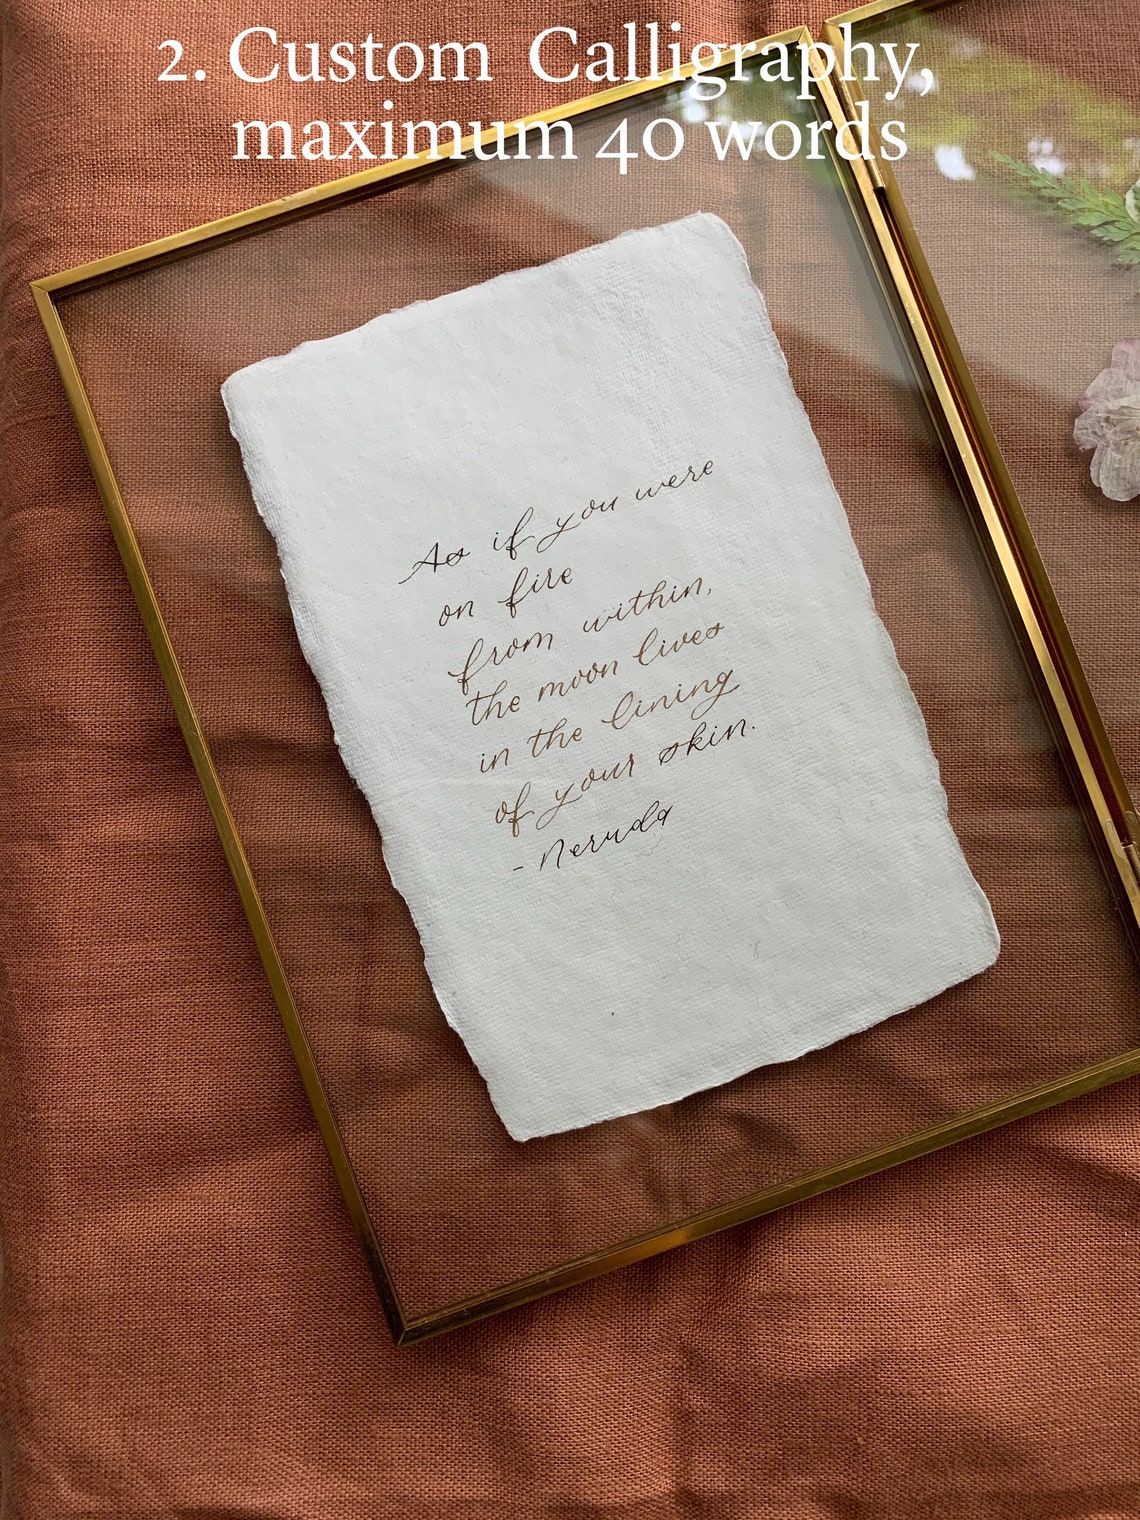 2. Custom Calligraphy,
maximum 40 words
As if you were
on fire
from within,
the moon lives
in the lining
of your skin.
- Neruda